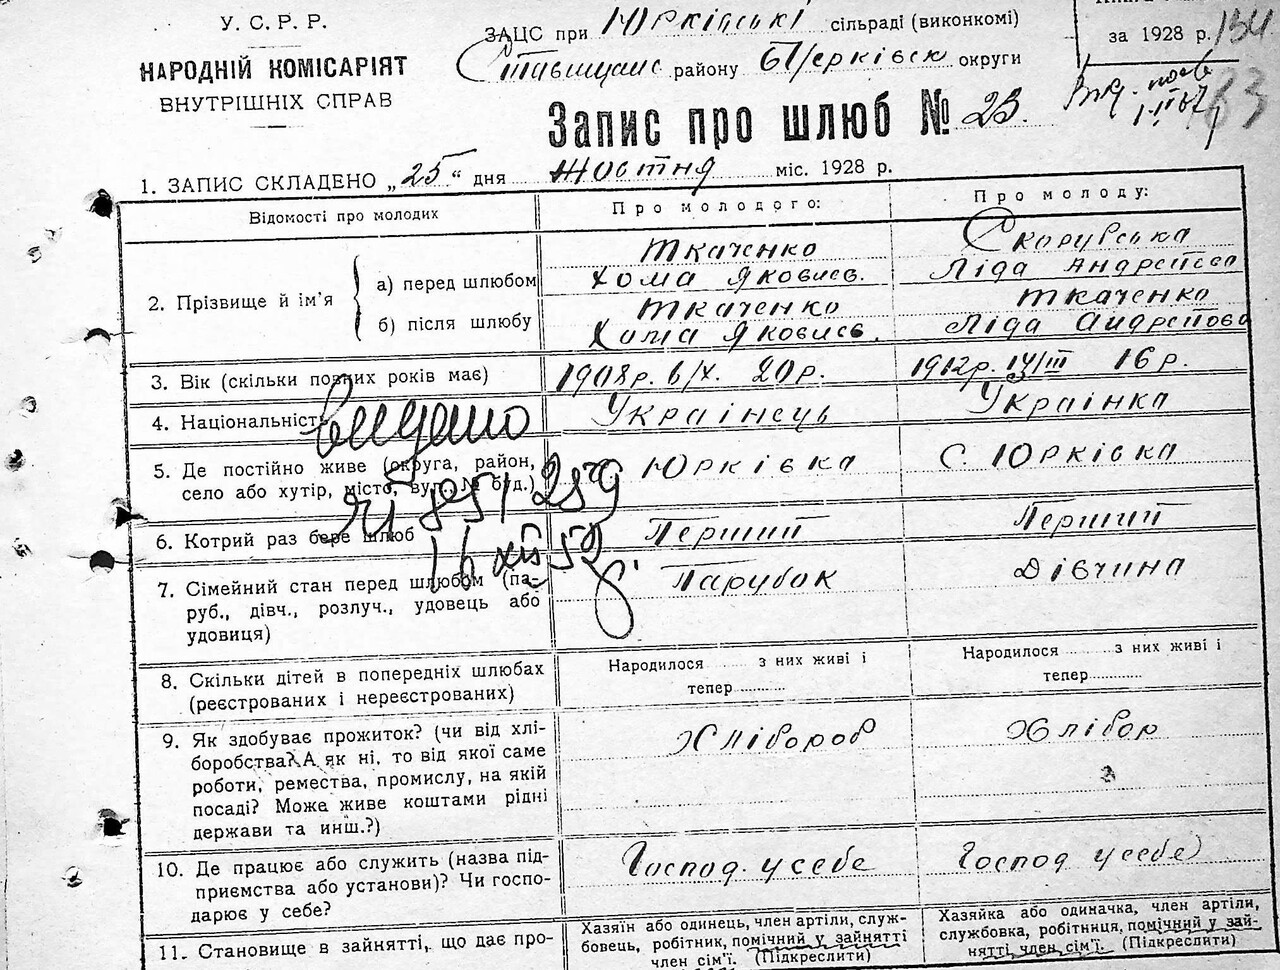 У. С. Р. Р.
НАРОДНІЙ КОМІСАРІЯТ
ВНУТРІШНІХ СПРАВ
ЗАЦС при Юрківські сільраді (виконкомі)
Ставищанс району БЦерківск округи
за 1928 р. 134
83
Запис про шлюб № 23.
1. ЗАПИС СКЛАДЕНО „25“ дня Жовтня міс. 1928 р.
Відомості про молодих
Про молодого:
Про молоду:
2. Прізвище й ім'я
а) перед шлюбом
Ткаченко
Хома Яковлев.
Скорувська
Ліда Андреєва
б) після шлюбу
Ткаченко
Хома Яковлев.
Ткаченко
Ліда Андреєва
3. Вік (скільки повних років має)
1908 р. 6/X. 20 р.
1912 р. 14/III 16 р.
4. Національність
Украінець
Украінка
5. Де постійно живе (округа, район,
село або хутір, місто, вул., № буд.)
Юрківка
с. Юрківка
6. Котрий раз бере шлюб
Перший
Перший
7. Сімейний стан перед шлюбом (па-
руб., дівч., розлуч., удовець або
удовиця)
Парубок
Дівчина
видано
16 XII 52
8. Скільки дітей в попередніх шлюбах
(реєстрованих і нереєстрованих)
Народилося ...... з них живі і
тепер............
Народилося ...... з них живі і
тепер............
9. Як здобуває прожиток? (чи від хлі-
боробства? А як ні, то від якої саме
роботи, ремества, промислу, на якій
посаді? Може живе коштами рідні
держави та инш.?)
Хлібороб
Хлібор
10. Де працює або служить (назва під-
приємства або установи)? Чи госпо-
дарює у себе?
Господ. у себе
Господ у себе
11. Становище в зайнятті, що дає про-
Хазяїн або одинець, член артіли, служ-
бовець, робітник, помічний у зайнятті
член сім'ї. (Підкреслити)
Хазяйка або одиначка, член артіли,
службовка, робітниця, помічний у зай-
нятті, член сім'ї. (Підкреслити)